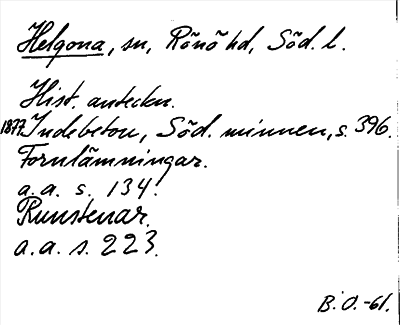 Helgona, sn, Rönö hd, Söd. l.
Hist. anteckn.
1877 Indebetou, Söd. minnen, s. 396.
Fornlämningar.
a.a. s. 134.
Runstenar.
a.a. s. 223.
B.O.-61.